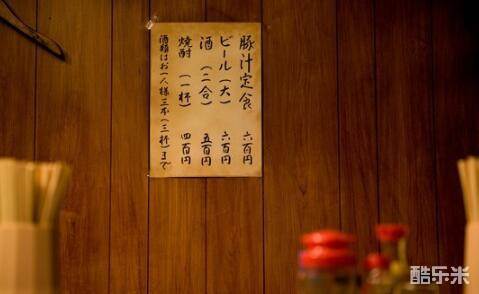 豚汁定食 六百円
ビール(大) 六百円
酒(二合) 五百円
焼酎(一杯) 四百円
酒類はお一人様三本(三杯)まで
酷乐米